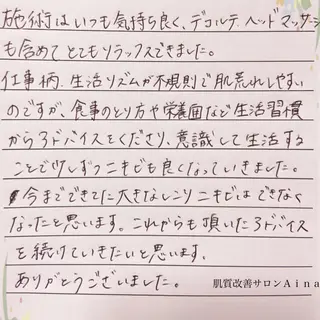 施術はいつも気持ち良く、デコルテ、ヘッドマッサージ
も含めてとてもリラックスできました。
仕事柄、生活リズムが不規則で肌荒れしやすい
のですが、食事のとり方や栄養面など生活習慣
からアドバイスをくださり、意識して生活する
ことで少しずつニキビも良くなっていきました。
今までできてた大きなしこりニキビはできなく
なったと思います。これからも頂いたアドバイス
を続けていきたいと思います。
ありがとうございました。
肌質改善サロンAina